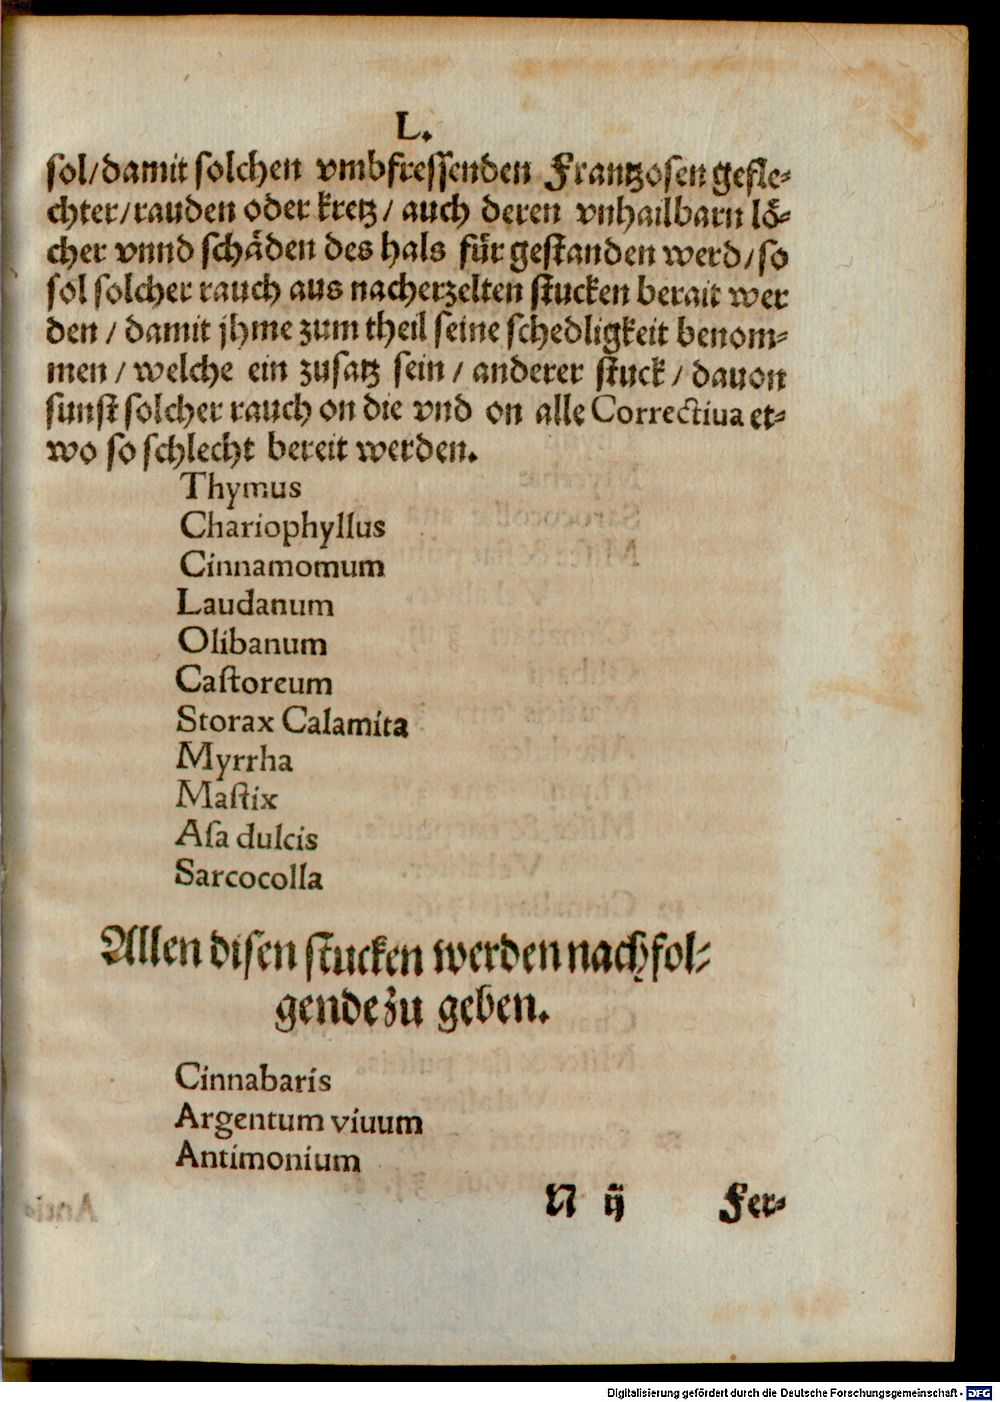 L.
sol/damit solchen vmbfressenden Frantzosen gefle-
chter/rauden oder kretz/ auch deren vnhailbarn lö-
cher vnnd schäden des hals für gestanden werd/so
sol solcher rauch aus nacherzelten stucken berait wer
den / damit jhme zum theil seine schedligkeit benom-
men / welche ein zusatz sein / anderer stuck / dauon
sunst solcher rauch on die vnd on alle Correctiua et-
wo so schlecht bereit werden.
Thymus
Chariophyllus
Cinnamomum
Laudanum
Olibanum
Castoreum
Storax Calamita
Myrrha
Mastix
Asa dulcis
Sarcocolla
Allen disen stucken werden nachfol-
gende zu geben.
Cinnabaris
Argentum viuum
Antimonium
N ij Fer-
Digitalisierung gefördert durch die Deutsche Forschungsgemeinschaft - DFG